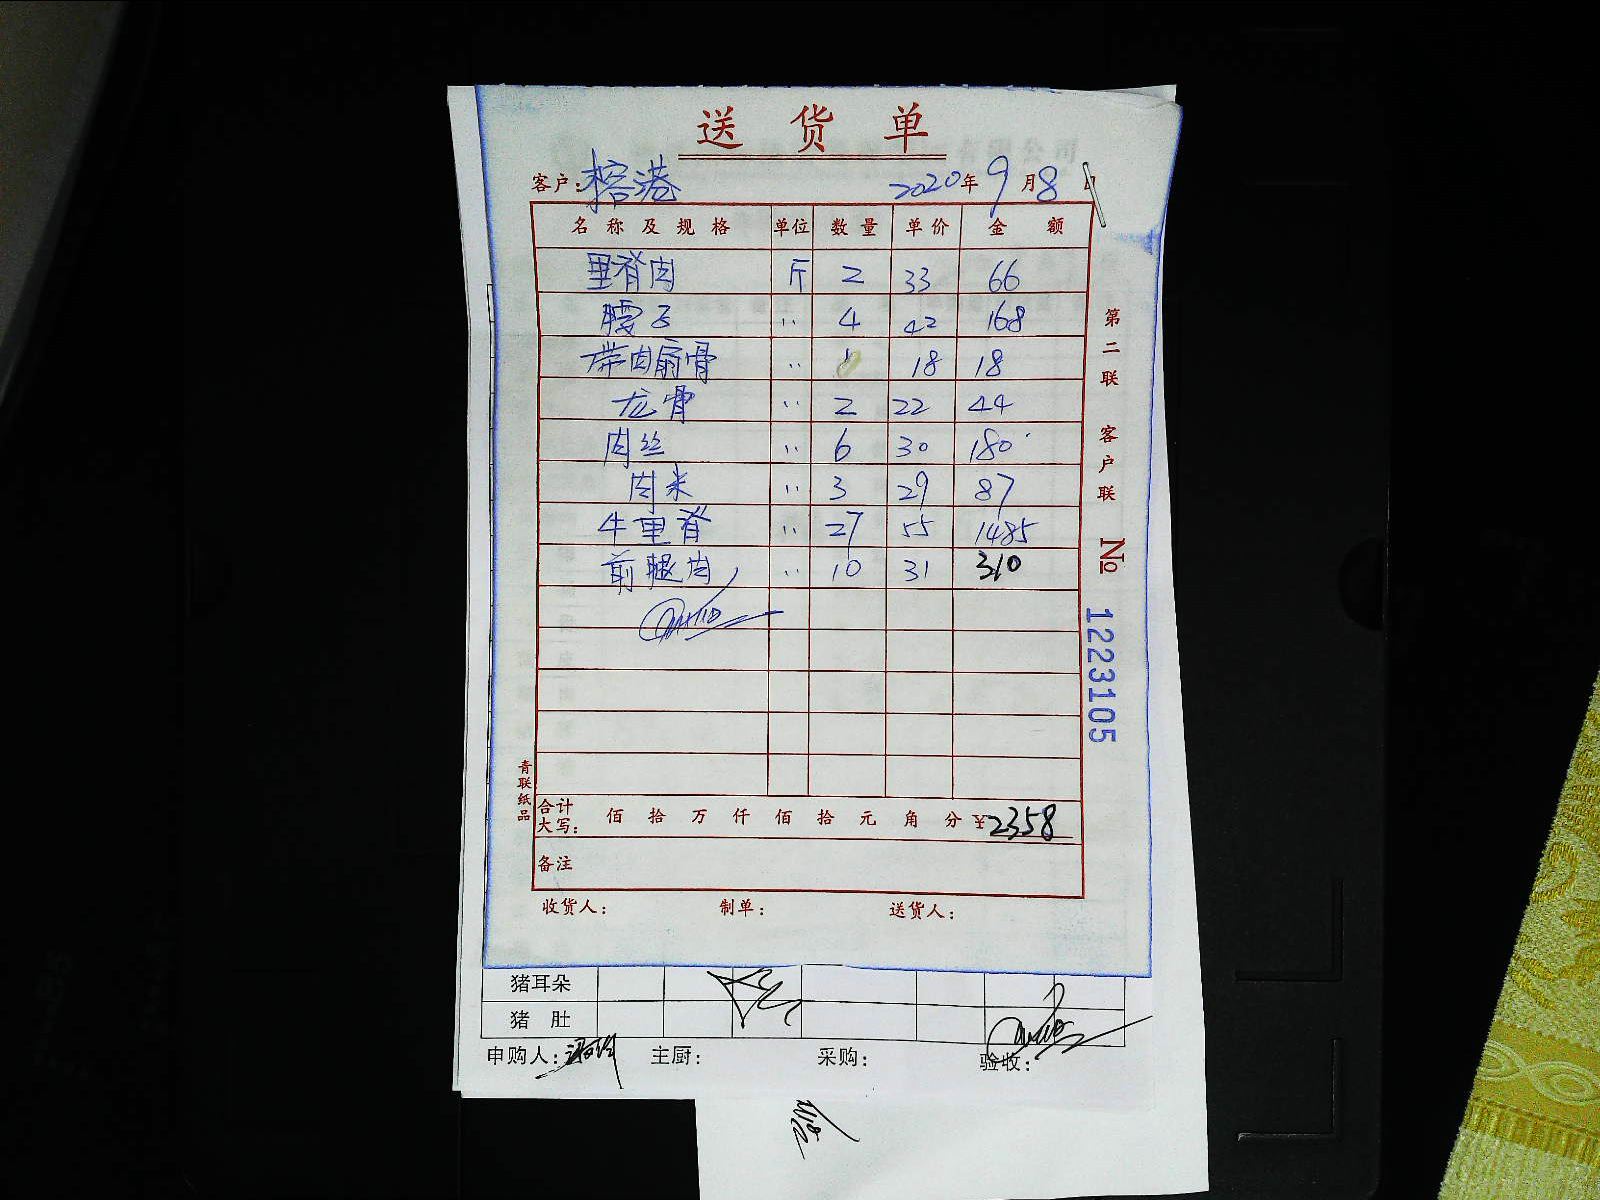 送货单
客户：榕港 2020年9月8日
名称及规格 单位 数量 单价 金额
里脊肉 斤 2 33 66
腰子 〃 4 42 168
带肉扇骨 〃 1 18 18
龙骨 〃 2 22 44
肉丝 〃 6 30 180
肉米 〃 3 29 87
牛里脊 〃 27 55 1485
前腿肉 〃 10 31 310
合计大写： 佰 拾 万 仟 佰 拾 元 角 分 ¥2358
备注
收货人： 制单： 送货人：
第二联 客户联 No 1223105
青联纸品
猪耳朵
猪肚
申购人： 主厨： 采购： 验收：